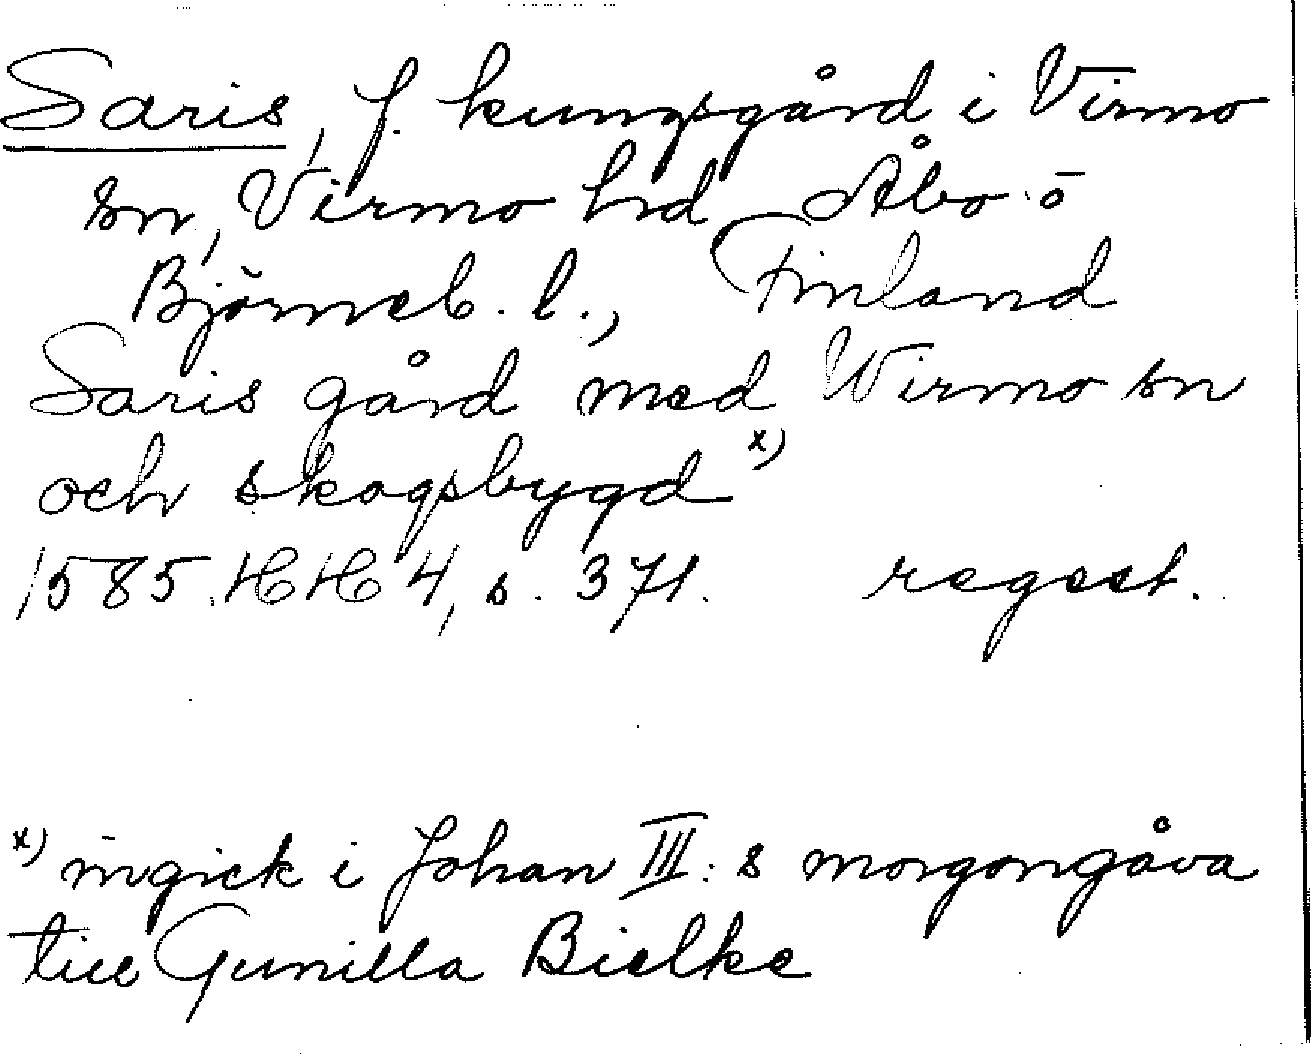 Saris, f. kungsgård i Virmo
sn, Virmo hd, Åbo o
Björneb. l., Finland
Saris gård med Wirmo sn
och skogsbygd x)
1585. HH 4, s. 371. regest.
x) ingick i Johan III:s morgongåva
till Gunilla Bielke